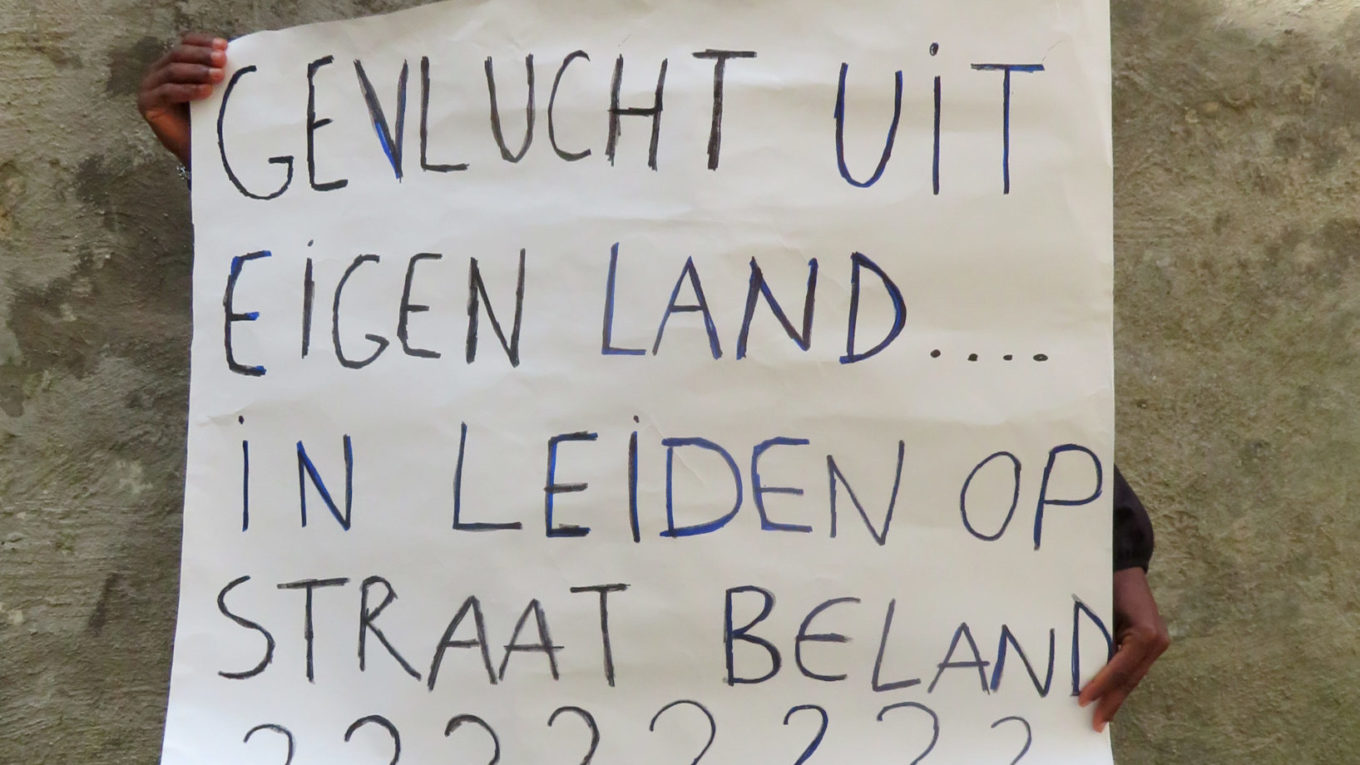 GEVLUCHT UiT
EiGEN LAND....
iN LEiDEN OP
STRAAT BELAND
????????